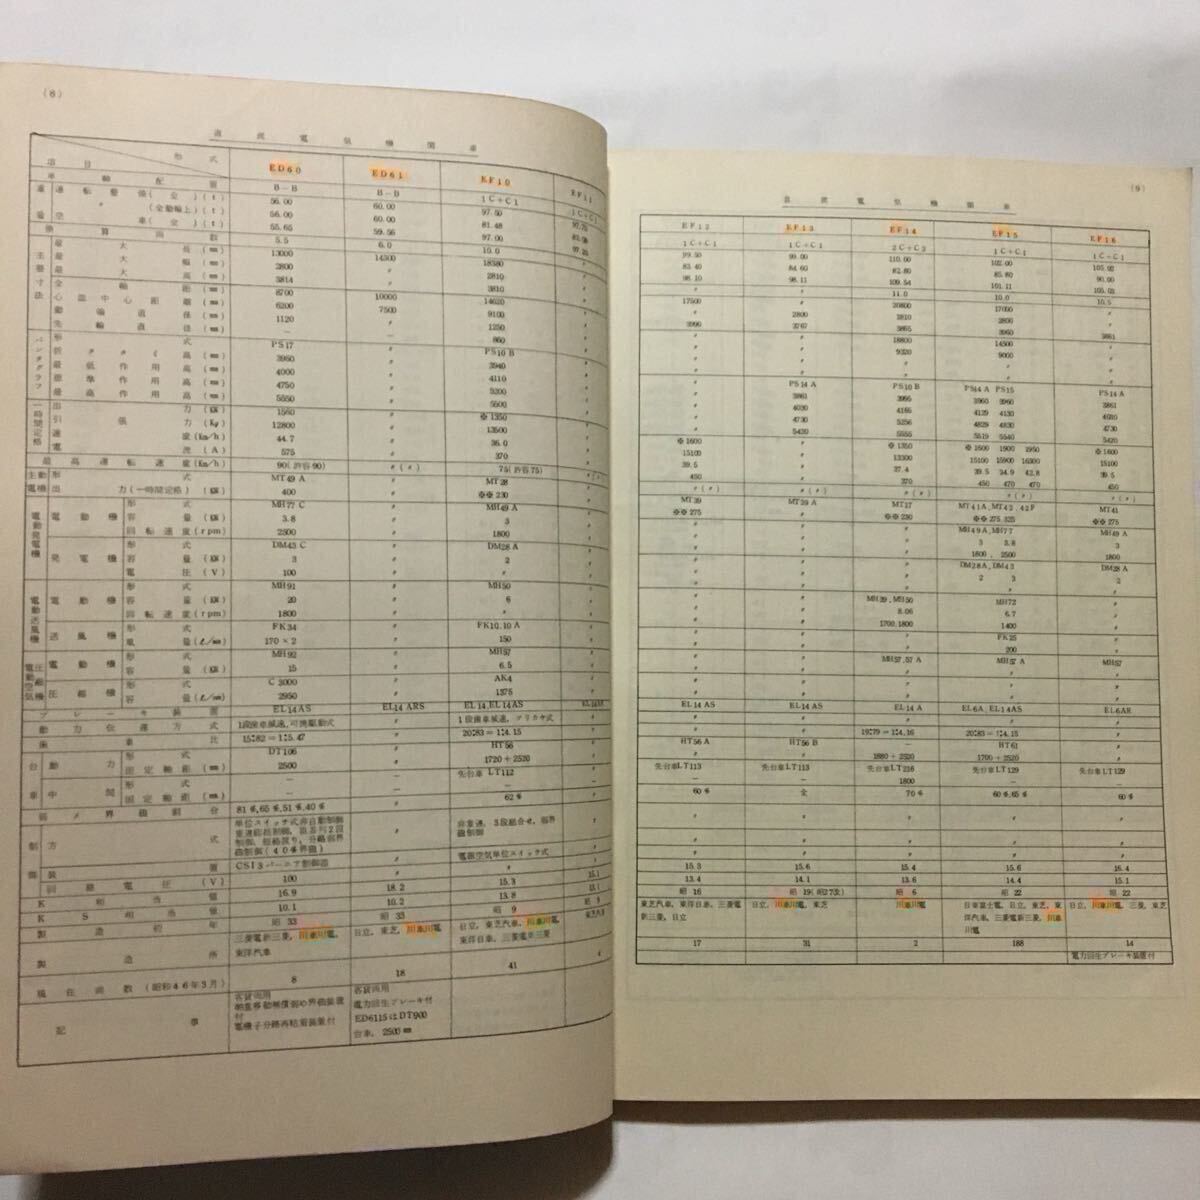 (8)
直流電気機関車
項目 形式 ED60 ED61 EF10 EF11
車軸配置 B－B B－B 1C＋C1 1C＋C1
運転整備(全)(t) 56.00 60.00 97.50
〃(全動輪上)(t) 56.00 60.00 81.48
空車(全)(t) 55.65 59.56 97.00
換算両数 5.5 6.0 10.0
最大長(mm) 13000 14300 18380 〃
最大幅(mm) 2800 〃 2810 〃
最大高(mm) 3814 〃 3810 〃
全軸距(mm) 8700 10000 14620 〃
心皿中心距離(mm) 6200 7500 9100 〃
動輪直径(mm) 1120 〃 1250 〃
先輪直径(mm) － － 860 〃
パンタグラフ
形式 PS17 〃 PS10B 〃
折タタミ高(mm) 3960 〃 3940 〃
最低作用高(mm) 4000 〃 4110 〃
標準作用高(mm) 4750 〃 5200 〃
最高作用高(mm) 5550 〃 5500 〃
一時間定格
出力(KW) 1560 〃 ※1350 〃
引張力(Kg) 12800 〃 13500 〃
速度(Km/h) 44.7 〃 36.0 〃
電流(A) 575 〃 370 〃
最高運転速度(Km/h) 90(許容90) 〃(〃) 75(許容75) 〃(〃)
主電動機
形式 MT49A 〃 MT28 〃
出力(一時間定格)(KW) 400 〃 ※※230 〃
電動発電機
電動機 形式 MH77C 〃 MH49A 〃
容量(KW) 3.8 〃 3 〃
回転速度(rpm) 2500 〃 1800 〃
発電機 形式 DM43C 〃 DM28A 〃
容量(KW) 3 〃 2 〃
電圧(V) 100 〃 〃 〃
電動送風機
電動機 形式 MH91 〃 MH50 〃
容量(KW) 20 〃 6 〃
回転速度(rpm) 1800 〃 〃 〃
送風機 形式 FK34 〃 FK10,10A 〃
風量 170×2 〃 150 〃
電動機 形式 MH92 〃 MH57 〃
容量(KW) 15 〃 6.5 〃
圧縮機 形式 C3000 〃 AK4 〃
容量 2950 〃 1375 〃
ブレーキ装置 EL14AS EL14ARS EL14,EL14AS EL14AS
動力伝達方式 1段歯車減速,可撓駆動式 〃 1段歯車減速,ツリカケ式 〃
歯車比 15:82＝1:5.47 〃 20:83＝1:4.15 〃
台車
動力 形式 DT106 〃 HT56 〃
固定軸距(mm) 2500 〃 1720＋2520 〃
中間 形式 － － 先台車LT112 〃
固定軸距(mm) － － －
弱メ界磁割合 81%,65%,51%,40% 〃 62% 〃
制御
方式 単位スイッチ式非自動制御 〃 非重連,3段組合せ,弱界磁制御 〃
装置 CS13バーニア制御器 〃 電磁空気単位スイッチ式 〃
回路電圧(V) 100 〃 〃 〃
K相当値 16.9 18.2 15.3 15.1
KS相当値 10.1 10.2 13.8
製造初年 昭33 昭33 昭9
製造所 三菱電新三菱,川車川電,東洋汽車 日立,東芝,川車川電 日立,東芝汽車,川車川電,東洋日車,三菱電新三菱
現在両数(昭和46年3月) 8 18 41 4
記事
客貨両用
軸重移動補償弱め界磁装置付
電機子分路再粘着装置付
客貨両用
電力回生ブレーキ付
ED6115はDT900
台車,2500mm
(9)
直流電気機関車
EF12 EF13 EF14 EF15 EF16
1C＋C1 1C＋C1 2C＋C2 1C＋C1 1C＋C1
99.50 99.00 110.00 102.00 105.92
83.40 84.60 82.80 85.80 90.00
98.10 98.11 109.54 101.11 105.03
〃 〃 11.0 10.0 10.5
17500 〃 20800 17000 〃
〃 2800 2810 2800 〃
3990 3767 3865 3960 3861
〃 〃 18800 14500 〃
〃 〃 9320 9000 〃
〃 〃 〃 〃 〃
〃 〃 〃 〃 〃
〃 PS14A PS10B PS14A PS15 PS14A
〃 3861 3995 3960 3960 3861
〃 4030 4165 4129 4130 4030
〃 4730 5255 4829 4830 4730
〃 5430 5555 5519 5540 5420
※1600 〃 ※1350 ※1600 1900 1950 ※1600
15100 〃 13300 15100 15900 16300 15100
39.5 〃 37.4 39.5 24.9 42.8 39.5
450 〃 370 450 470 470 450
〃(〃) 〃(〃) 〃(〃) 〃(〃) 〃(〃)
MT39 MT39A MT17 MT41A,MT42,42F MT41
※※275 〃 ※※230 ※※275,325 ※※275
〃 〃 〃 MH49A,MH77 MH49A
〃 〃 〃 3 3.8 3
〃 〃 〃 1800,2500 1800
〃 〃 〃 DM28A,DM43 DM28A
〃 〃 〃 2 3 2
〃 〃 〃 〃 〃
〃 〃 MH39,MH50 MH72 〃
〃 〃 8.06 6.7 〃
〃 〃 1700,1800 1400 〃
〃 〃 〃 FK25 〃
〃 〃 〃 200 〃
〃 〃 MH57,57A MH57A MH57
〃 〃 〃 〃 〃
〃 〃 〃 〃 〃
〃 〃 〃 〃 〃
EL14AS EL14AS EL14A EL6A,EL14AS EL6AR
〃 〃 〃 〃 〃
〃 〃 19:79＝1:4.16 20:83＝1:4.15 〃
HT56A HT56B － HT61 〃
〃 〃 1880＋2520 1700＋2520 〃
先台車LT113 先台車LT113 先台車LT216 先台車LT129 先台車LT129
－ － 1800 － －
60% 全 70% 60%,65% 60%
〃 〃 〃 〃 〃
〃 〃 〃 〃 〃
〃 〃 〃 〃 〃
15.3 15.6 15.4 15.6 16.4
13.4 14.1 13.6 14.4 15.1
昭16 昭19(昭27改) 昭6 昭22 昭22
東芝汽車,東洋日車,三菱電新三菱,日立 日立,川車川電,東芝 川車川電 日車富士電,日立,東芝,東洋汽車,三菱電新三菱,川車川電 日立,川車川電,三菱,東芝
17 31 2 188 14
電力回生ブレーキ装置付